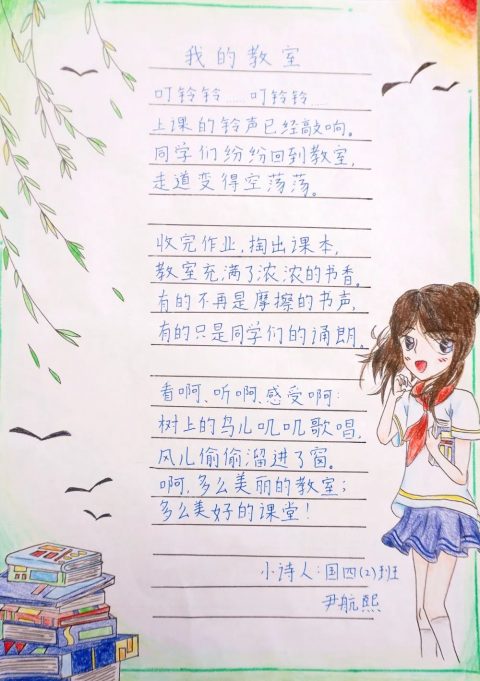 我的教室
叮铃铃……叮铃铃……
上课的铃声已经敲响。
同学们纷纷回到教室,
走道变得空荡荡。
收完作业,掏出课本,
教室充满了浓浓的书香。
有的不再是摩擦的书声,
有的只是同学们的诵朗。
看啊、听啊、感受啊:
树上的鸟儿叽叽歌唱,
风儿偷偷溜进了窗。
啊,多么美丽的教室;
多么美好的课堂!
小诗人:国四(2)班
尹航熙